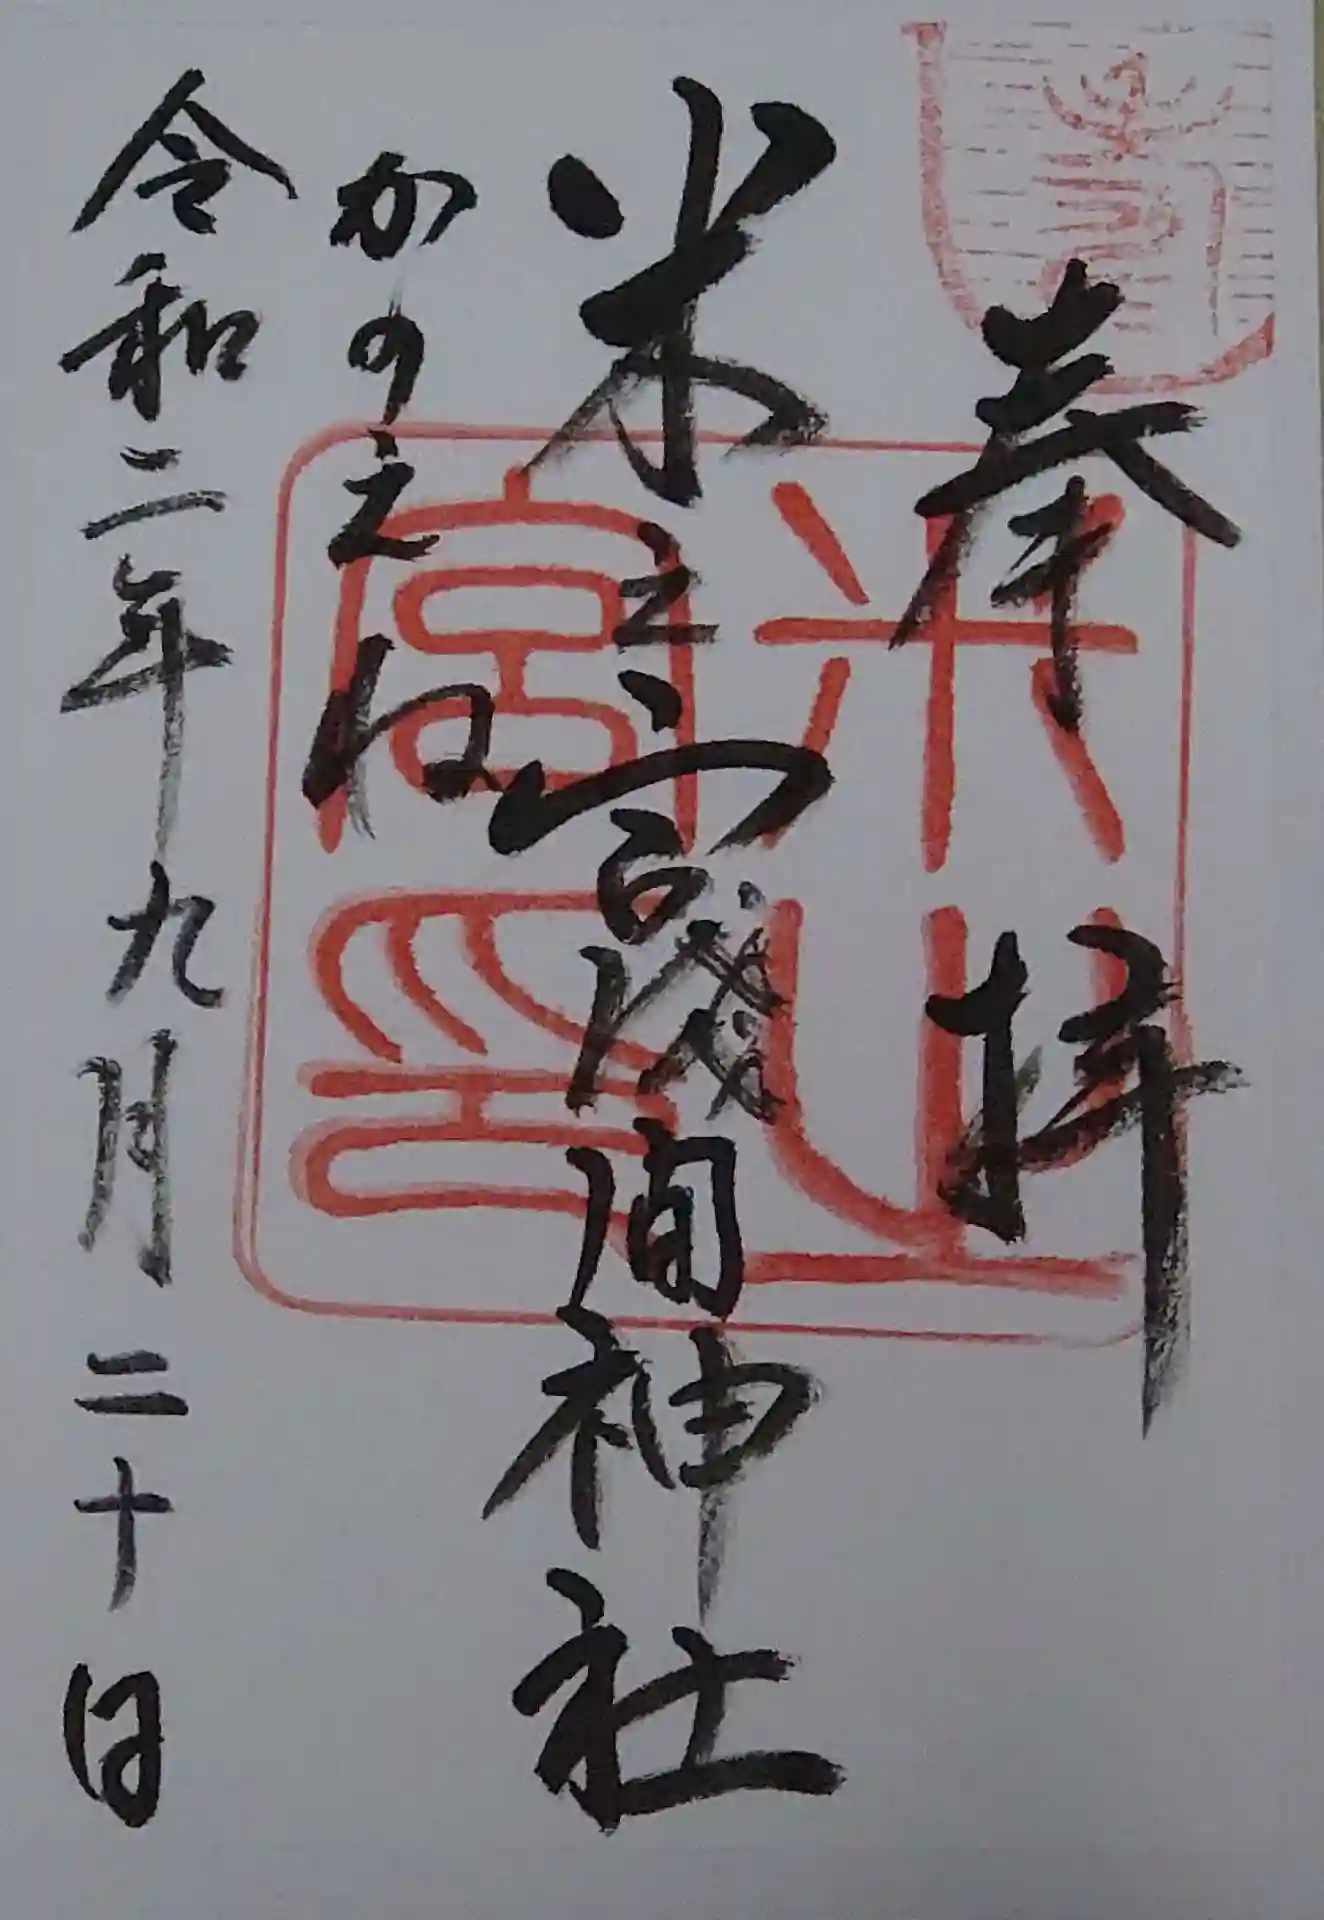 奉拝
米之宮浅間神社
かのえね
令和二年九月二十日
米之
宮印